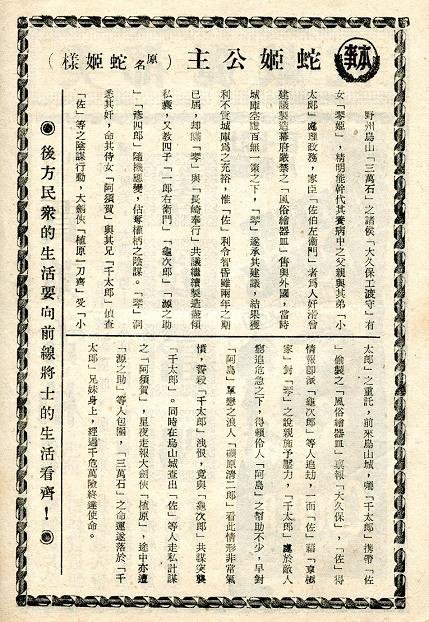 本事
蛇姬公主（原名蛇姬樣）
野州烏山「三萬石」之諸侯「大久保工渡守」有
女「琴姬」，精明能幹代其養病中之父親與其弟「小
太郎」處理政務，家臣「佐伯左衛門」者為人奸滑曾
建議製造幕府嚴禁之「風俗繪器皿」售與外國，當時
城庫空虛百無一策之下，「琴」遂承其建議，結果獲
利不貲城庫為之充裕，惟「佐」利令智昏雖兩年之期
已屆，却瞞「琴」與「長崎奉行」共議繼續製造盡傾
私囊，又教四子「一郎右衛門」「龜次郎」「源之助
」「彥四郎」隨機應變，佔奪權柄之陰謀。「琴」洞
悉其奸，命其侍女「阿須賀」與其兄「千太郎」偵查
「佐」等之陰謀行動，大劍俠「植原一刀齊」受「小
太郎」之重託，前來烏山城，囑「千太郎」携帶「佐
」偷製之「風俗繪器皿」稟報「大久保」，「佐」得
情報卽派「龜次郎」等人追劫，一面「佐」藉「京極
家」對「琴」之說親施予壓力，「千太郎」處於敵人
窮追危急之下，得賴伶人「阿島」之幫助不少，早對
「阿島」單戀之浪人「磯原溝二郎」看此情形非常氣
憤，誓殺「千太郎」洩恨，竟與「龜次郎」共謀突襲
「千太郎」。同時在烏山城查出「佐」等人走私計謀
之「阿須賀」，星夜走報大劍俠「植原」，途中亦遭
「源之助」等人包圍，「三萬石」之命運遂落於「千
太郎」兄妹身上，經過千危萬險終達使命。
◉後方民衆的生活要向前線將士的生活看齊！◉